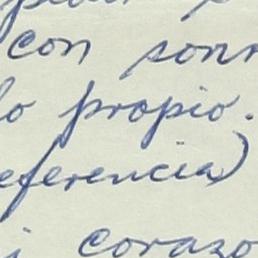 con sonr
lo propio.
eferencia)
i corazo